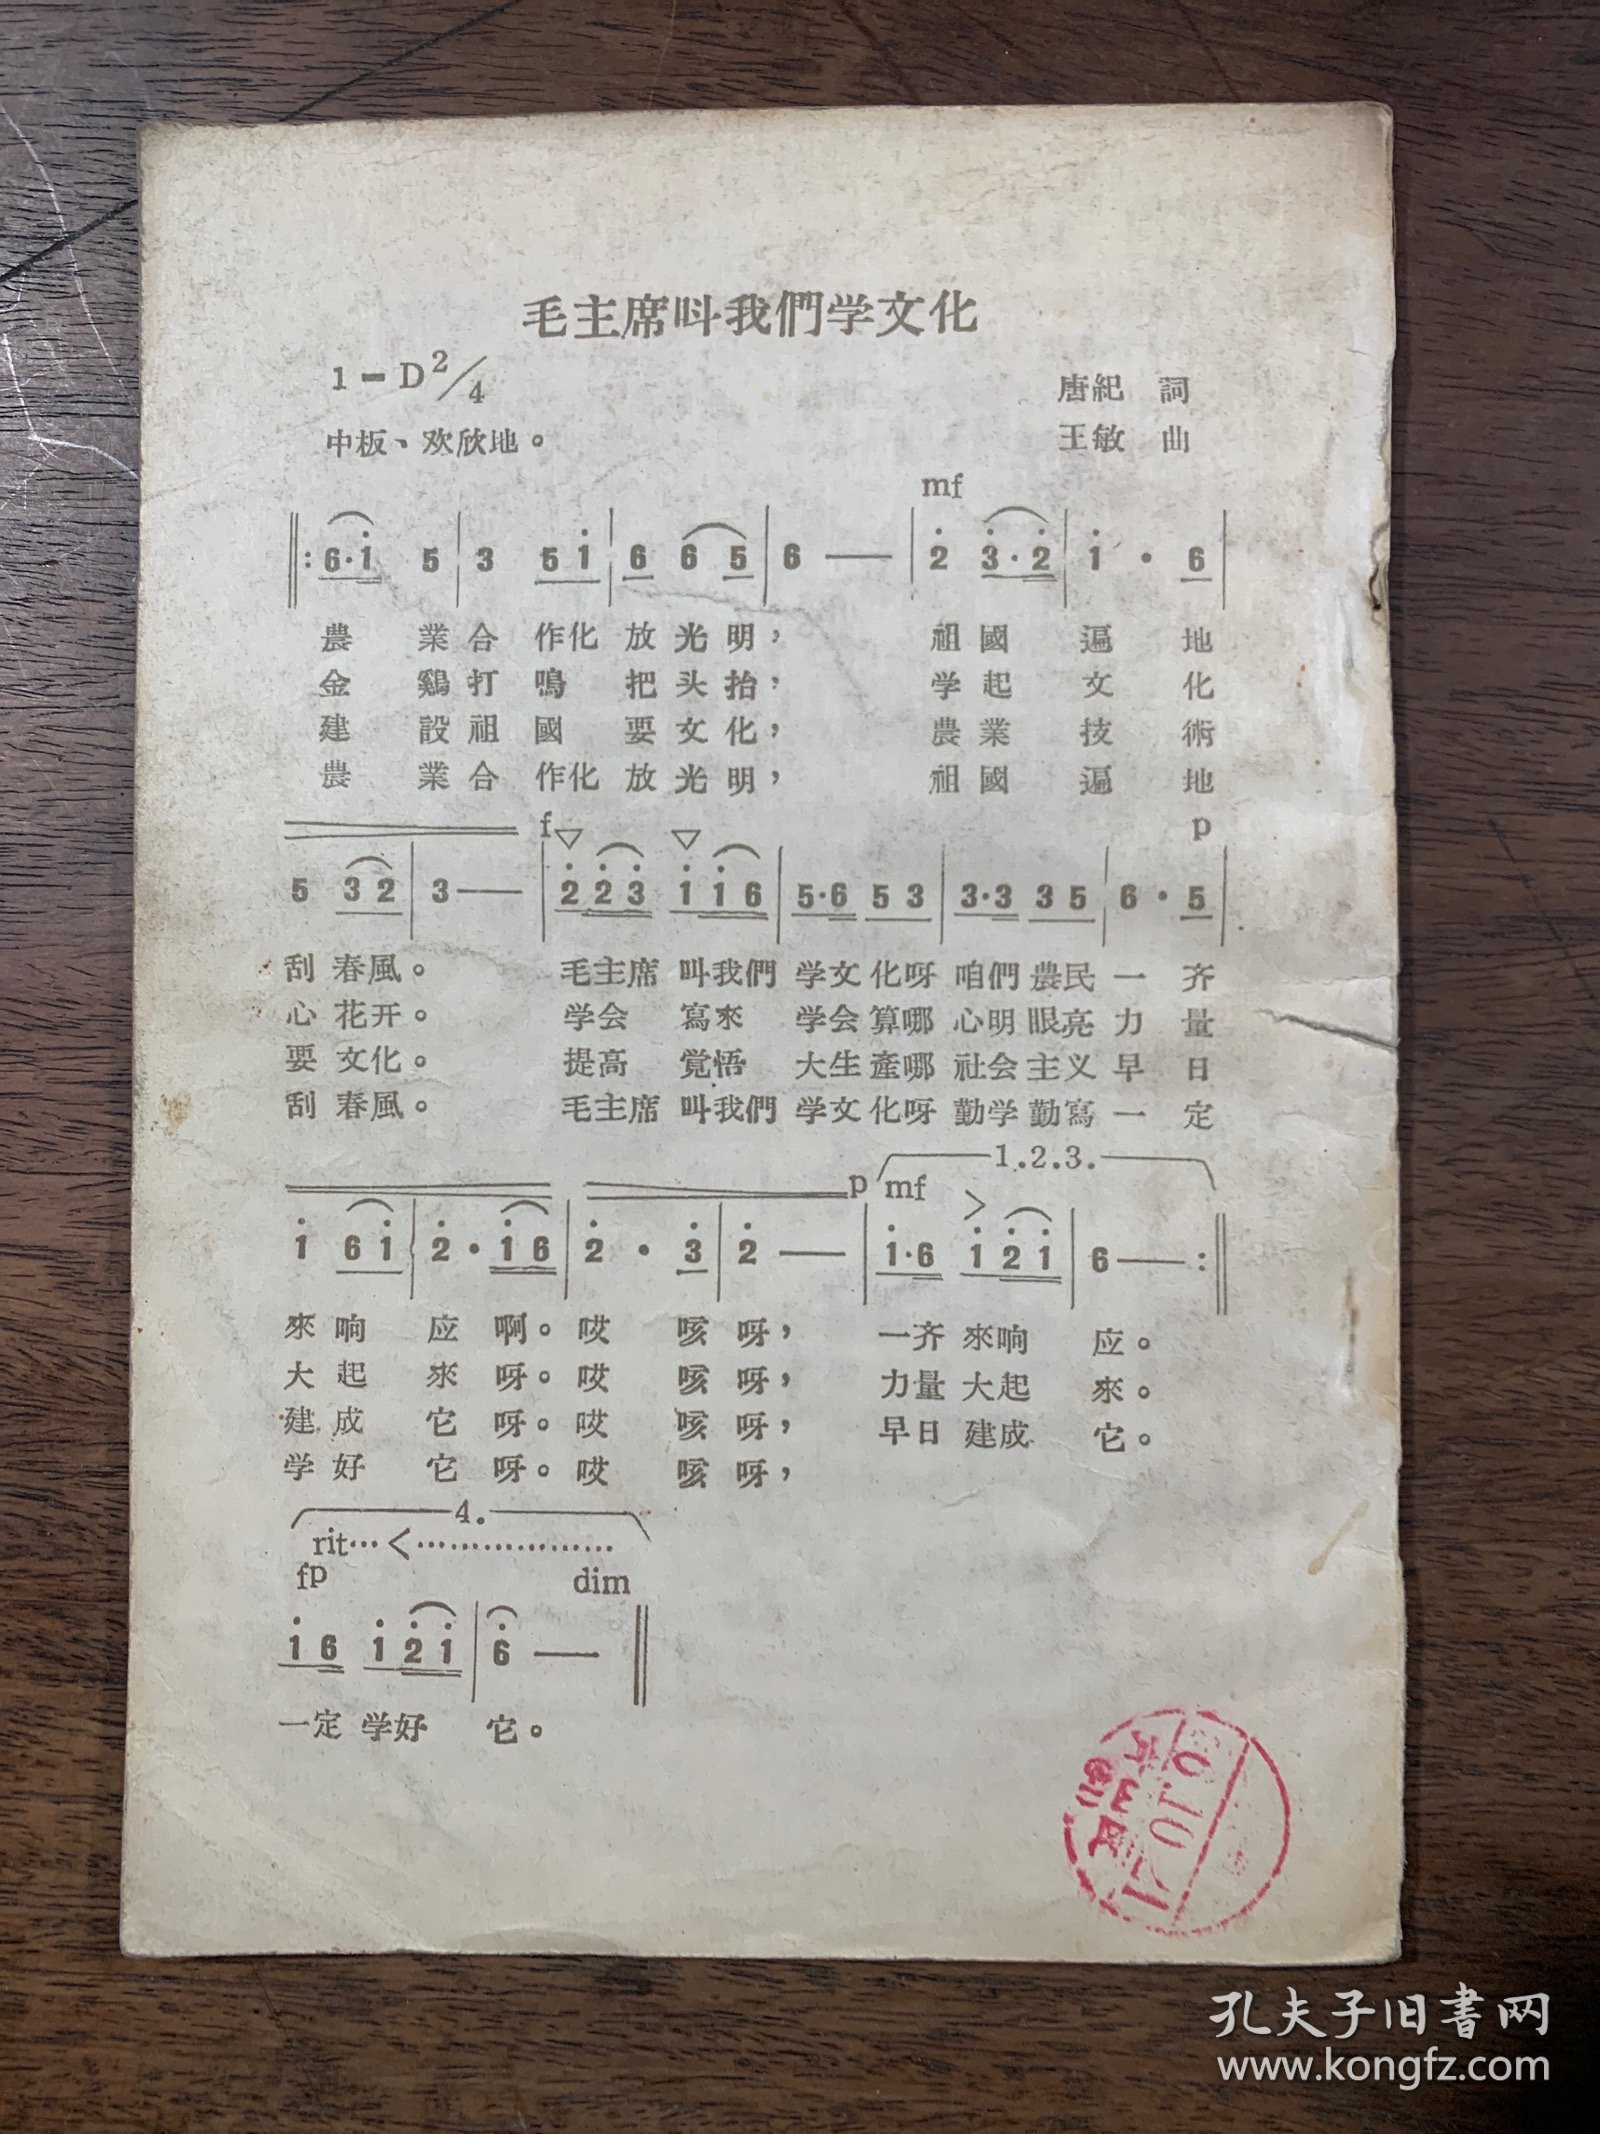 毛主席叫我們学文化
1=D 2/4
唐紀 詞
中板、欢欣地。
王敏 曲
mf
‖: 6·i 5 | 3 5 i | 6 6 5 | 6 — | 2 3·2 | i · 6 |
農 業 合 作化 放 光 明， 祖 國 遍 地
金 鷄 打 鳴 把 头 抬， 学 起 文 化
建 設 祖 國 要 文 化， 農 業 技 術
農 業 合 作化 放 光 明， 祖 國 遍 地
f p
5 3 2 | 3 — | 2 2 3 i i 6 | 5·6 5 3 | 3·3 3 5 | 6 · 5 |
刮 春風。 毛主席 叫我們 学文 化呀 咱們 農民 一 齐
心 花开。 学会 寫來 学会 算哪 心明 眼亮 力 量
要 文化。 提高 覚悟 大生 產哪 社会 主义 早 日
刮 春風。 毛主席 叫我們 学文 化呀 勤学 勤寫 一 定
1.2.3.
p mf
i 6 i | 2 · i 6 | 2 · 3 | 2 — | i·6 i 2 i | 6 — :‖
來 响 应 啊。哎 咳 呀， 一齐 來响 应。
大 起 來 呀。哎 咳 呀， 力量 大起 來。
建 成 它 呀。哎 咳 呀， 早日 建成 它。
学 好 它 呀。哎 咳 呀，
4.
rit…<………………
fp dim
i 6 i 2 i | 6 — ‖
一定 学好 它。
孔夫子旧書网
www.kongfz.com